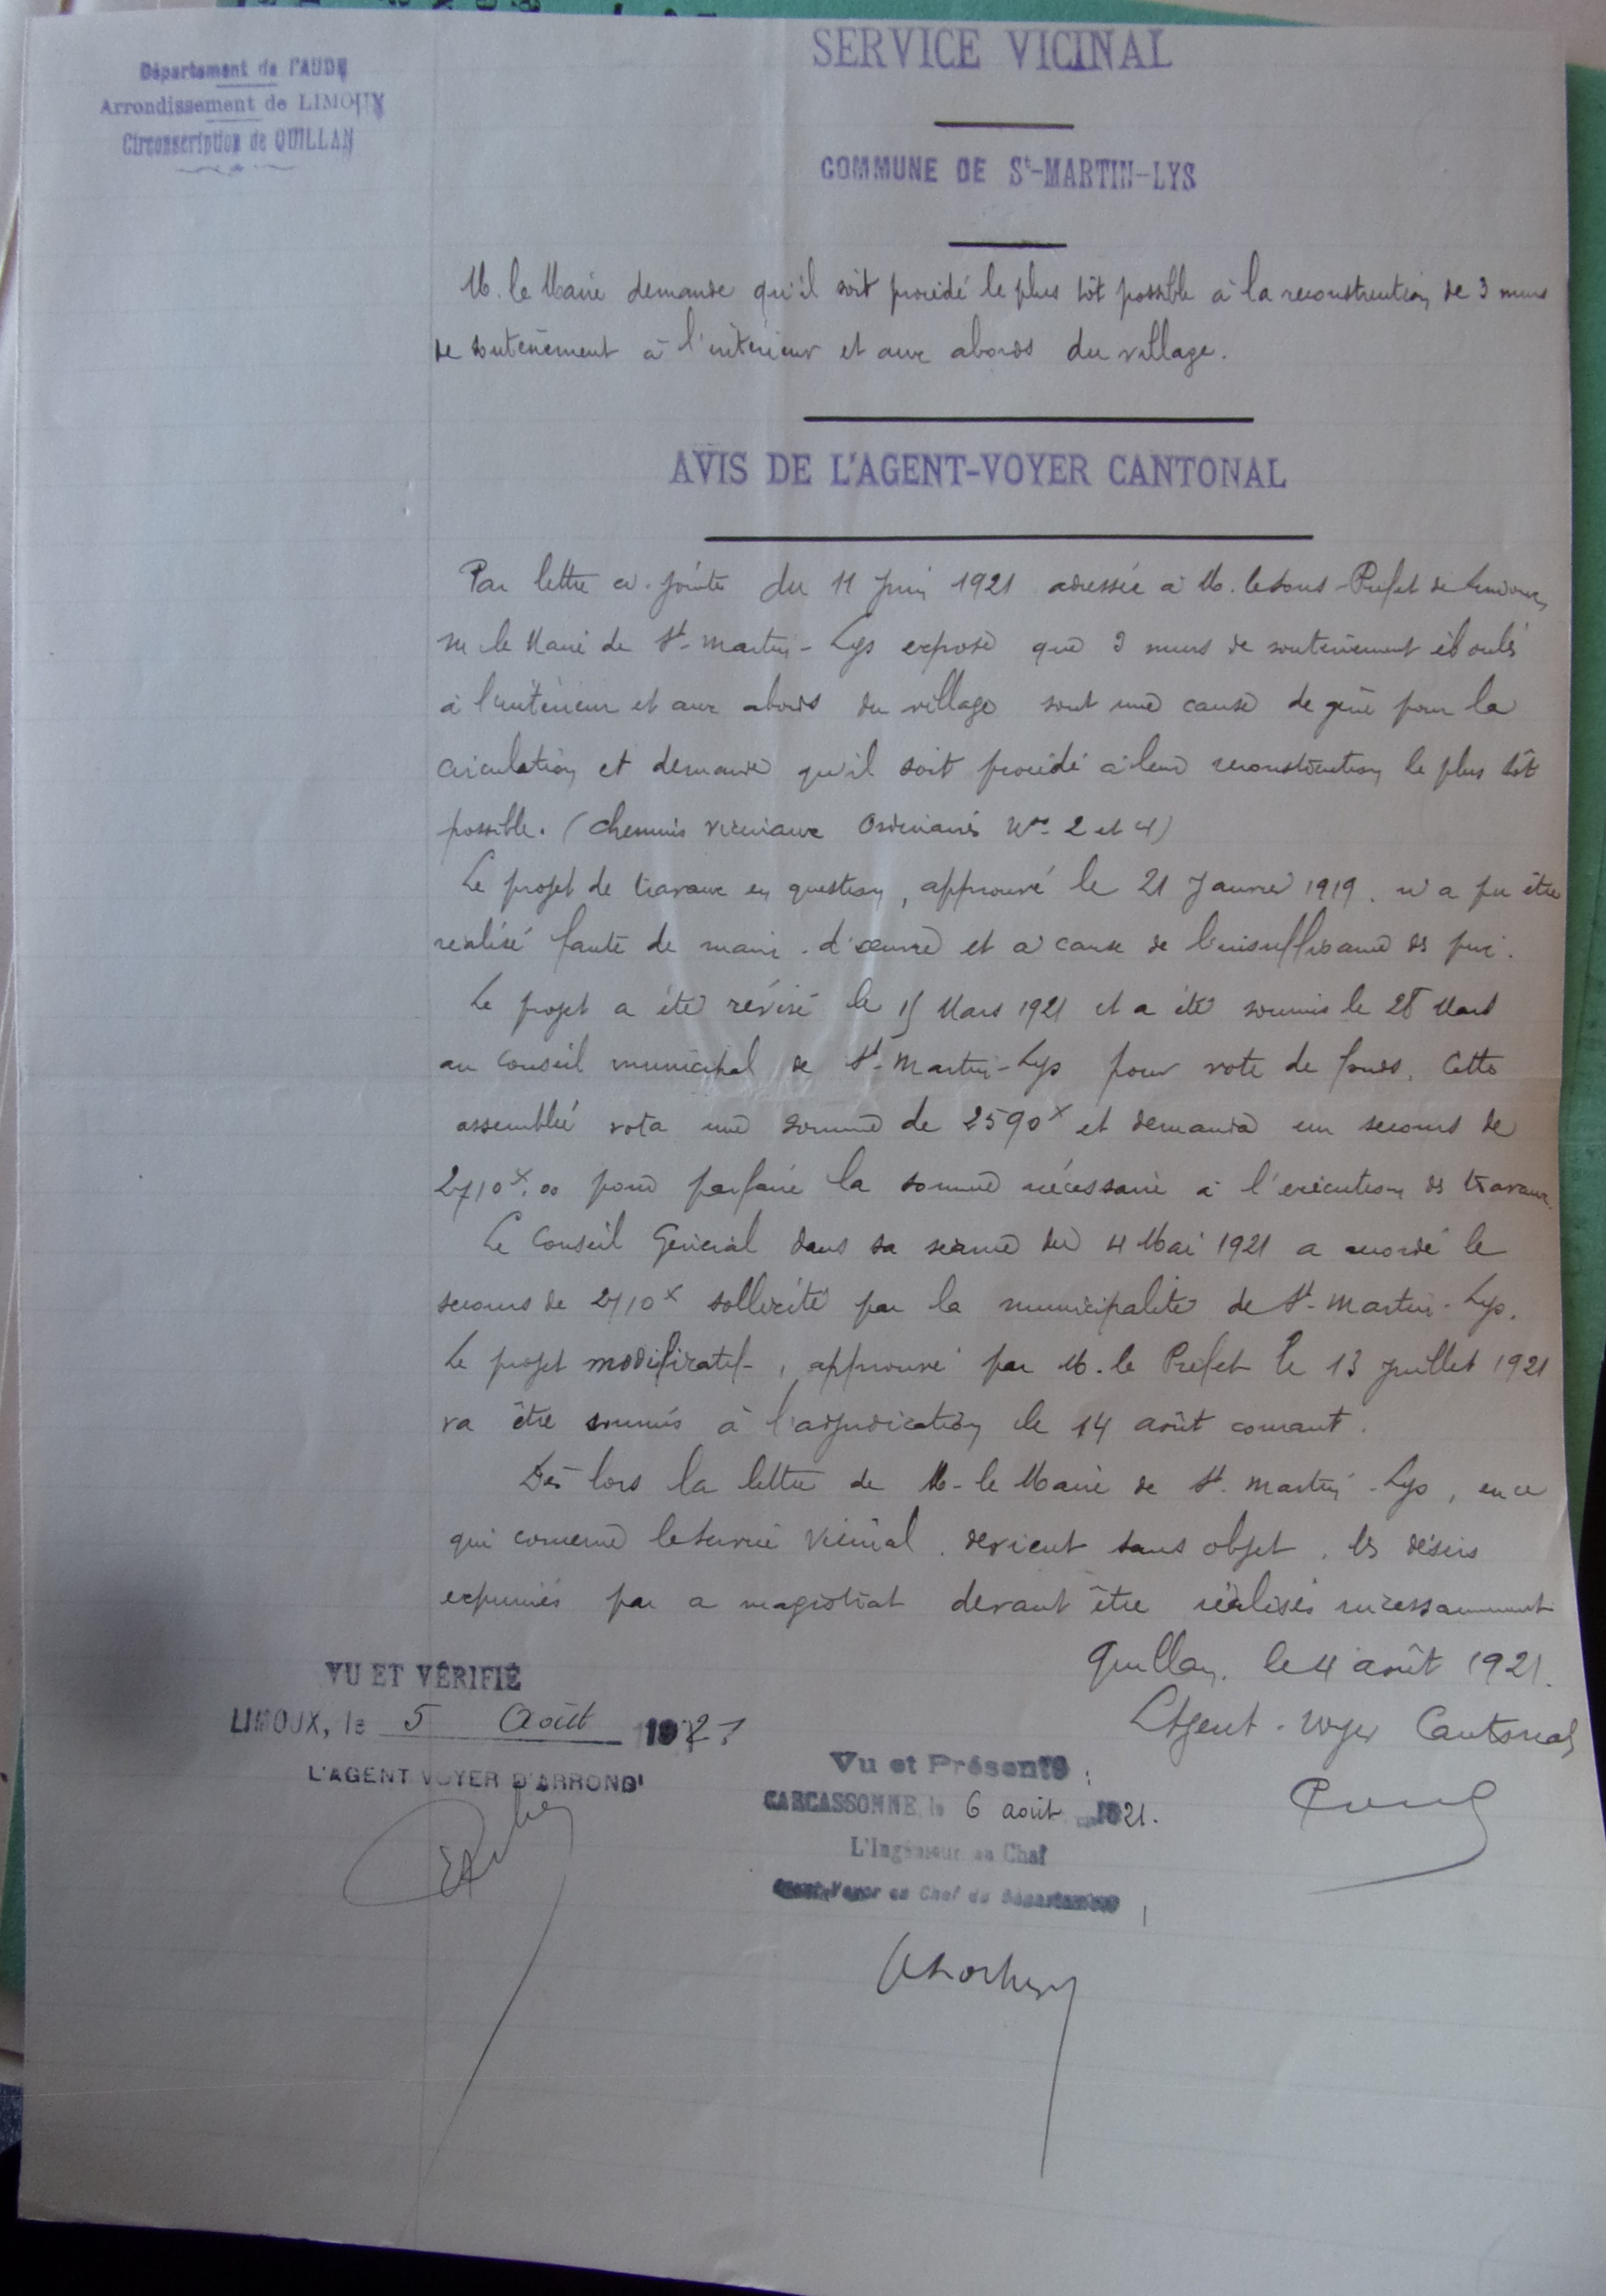 Département de l'AUDE
Arrondissement de LIMOUX
Circonscription de QUILLAN
SERVICE VICINAL
COMMUNE DE St-MARTIN-LYS
M. le Maire demande qu'il soit procédé le plus tôt possible à la reconstruction de 3 murs
de soutènement à l'intérieur et aux abords du village.
AVIS DE L'AGENT-VOYER CANTONAL
Par lettre ci-jointe du 11 Juin 1921 adressée à M. le Sous-Préfet de Limoux,
M. le Maire de St-Martin-Lys expose que 3 murs de soutènement éboulés
à l'intérieur et aux abords du village sont une cause de gêne pour la
circulation et demande qu'il soit procédé à leur reconstruction le plus tôt
possible. (Chemins vicinaux Ordinaires Nos 2 et 4)
Le projet de travaux en question, approuvé le 21 Janvier 1919, n'a pu être
réalisé faute de main-d'œuvre et à cause de l'insuffisance des prix.
Le projet a été révisé le 15 Mars 1921 et a été soumis le 28 Mars
au Conseil municipal de St-Martin-Lys pour vote de fonds. Cette
assemblée vota une somme de 2590f et demanda un secours de
2710f.00 pour parfaire la somme nécessaire à l'exécution des travaux.
Le Conseil Général dans sa séance du 4 Mai 1921 a accordé le
secours de 2710f sollicité par la municipalité de St-Martin-Lys.
Le projet modificatif, approuvé par M. le Préfet le 13 Juillet 1921
va être soumis à l'adjudication le 14 août courant.
Dès lors la lettre de M. le Maire de St-Martin-Lys, en ce
qui concerne le Service Vicinal, devient sans objet, les désirs
exprimés par ce magistrat devant être réalisés incessamment
Quillan, le 4 août 1921.
L'Agent-Voyer Cantonal
VU ET VÉRIFIÉ
LIMOUX, le 5 Août 1921
L'AGENT VOYER D'ARRONDt
Vu et Présenté :
CARCASSONNE, le 6 août 1921.
L'Ingénieur en Chef
Agent-Voyer en Chef du Département